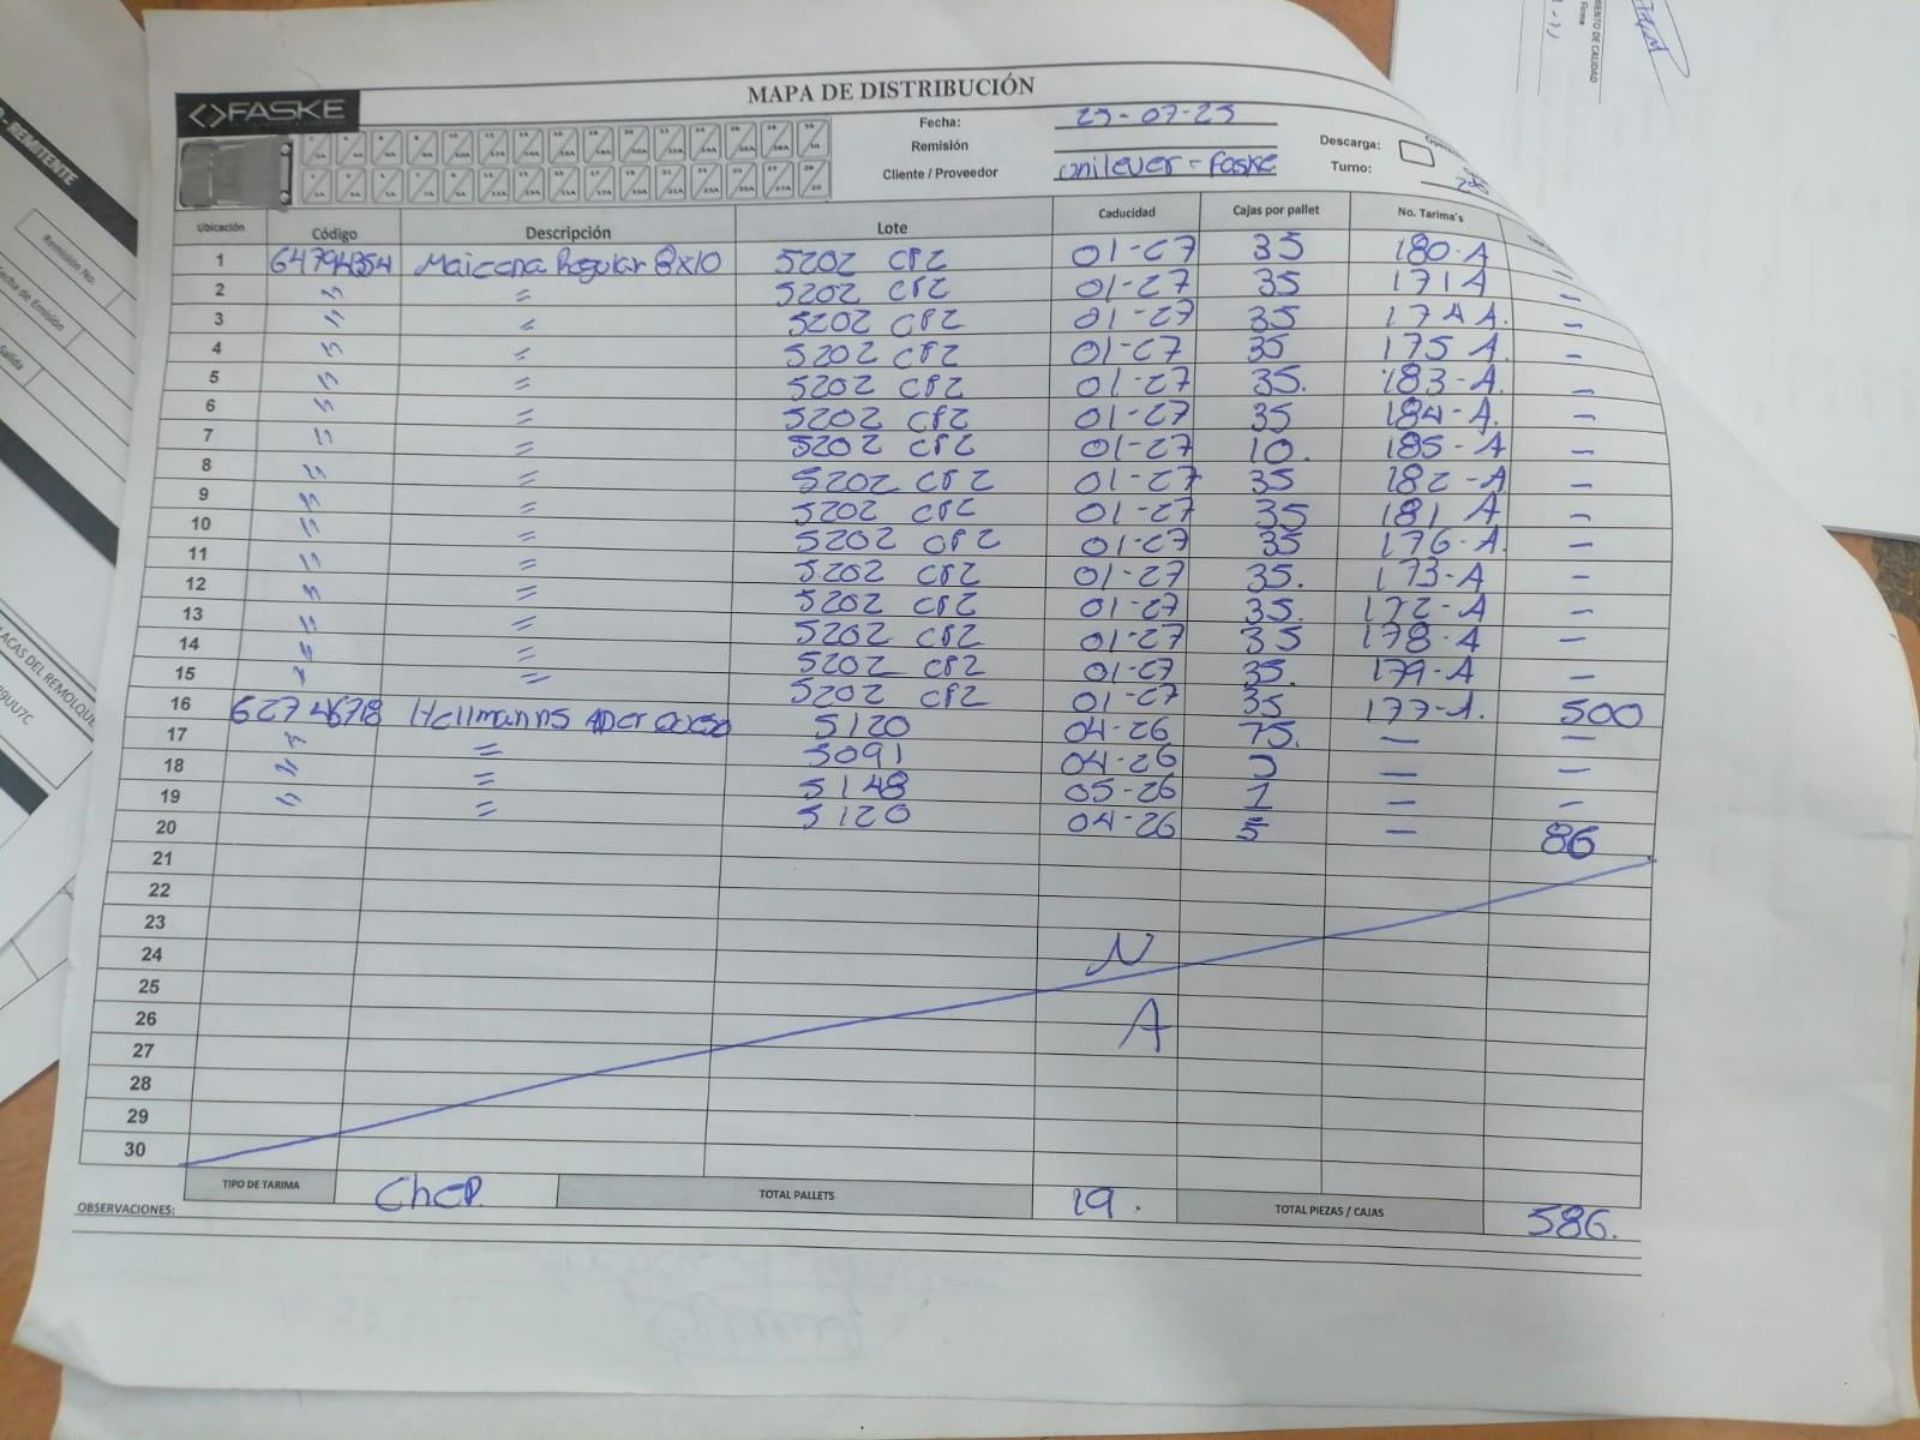 <>FASKE
MAPA DE DISTRIBUCIÓN
Fecha: 25-07-25
Remisión
Cliente / Proveedor Unilever - Faske
Descarga:
Turno:
Ubicación Código Descripción Lote Caducidad Cajas por pallet No. Tarima's
1 64794354 Maicena Regular 8x10 5202 CP2 01-27 35 180-A
2 " " 5202 CP2 01-27 35 171 A -
3 " " 5202 CP2 01-27 35 174 A. -
4 " " 5202 CP2 01-27 35 175 A. -
5 " " 5202 CP2 01-27 35. 183-A. -
6 " " 5202 CP2 01-27 35 184-A. -
7 " " 5202 CP2 01-27 10. 185-A -
8 " " 5202 CP2 01-27 35 182-A -
9 " " 5202 CP2 01-27 35 181 A -
10 " " 5202 CP2 01-27 35 176-A. -
11 " " 5202 CP2 01-27 35. 173-A -
12 " " 5202 CP2 01-27 35. 172-A -
13 " " 5202 CP2 01-27 35 178-A -
14 " " 5202 CP2 01-27 35. 179-A -
15 " " 5202 CP2 01-27 35 177-A. 500
16 62746718 Hellmanns 5120 04-26 75. - -
17 " " 5091 04-26 - -
18 " " 5148 05-26 1 - -
19 " " 5120 04-26 5 - 86
20
21
22
23
24 N
25
26 A
27
28
29
30
TIPO DE TARIMA Chep. TOTAL PALLETS 19. TOTAL PIEZAS / CAJAS 586.
OBSERVACIONES:
REMITENTE
Remisión No.
Fecha de Emisión
Salida
PLACAS DEL REMOLQUE
39UU7C
Firma